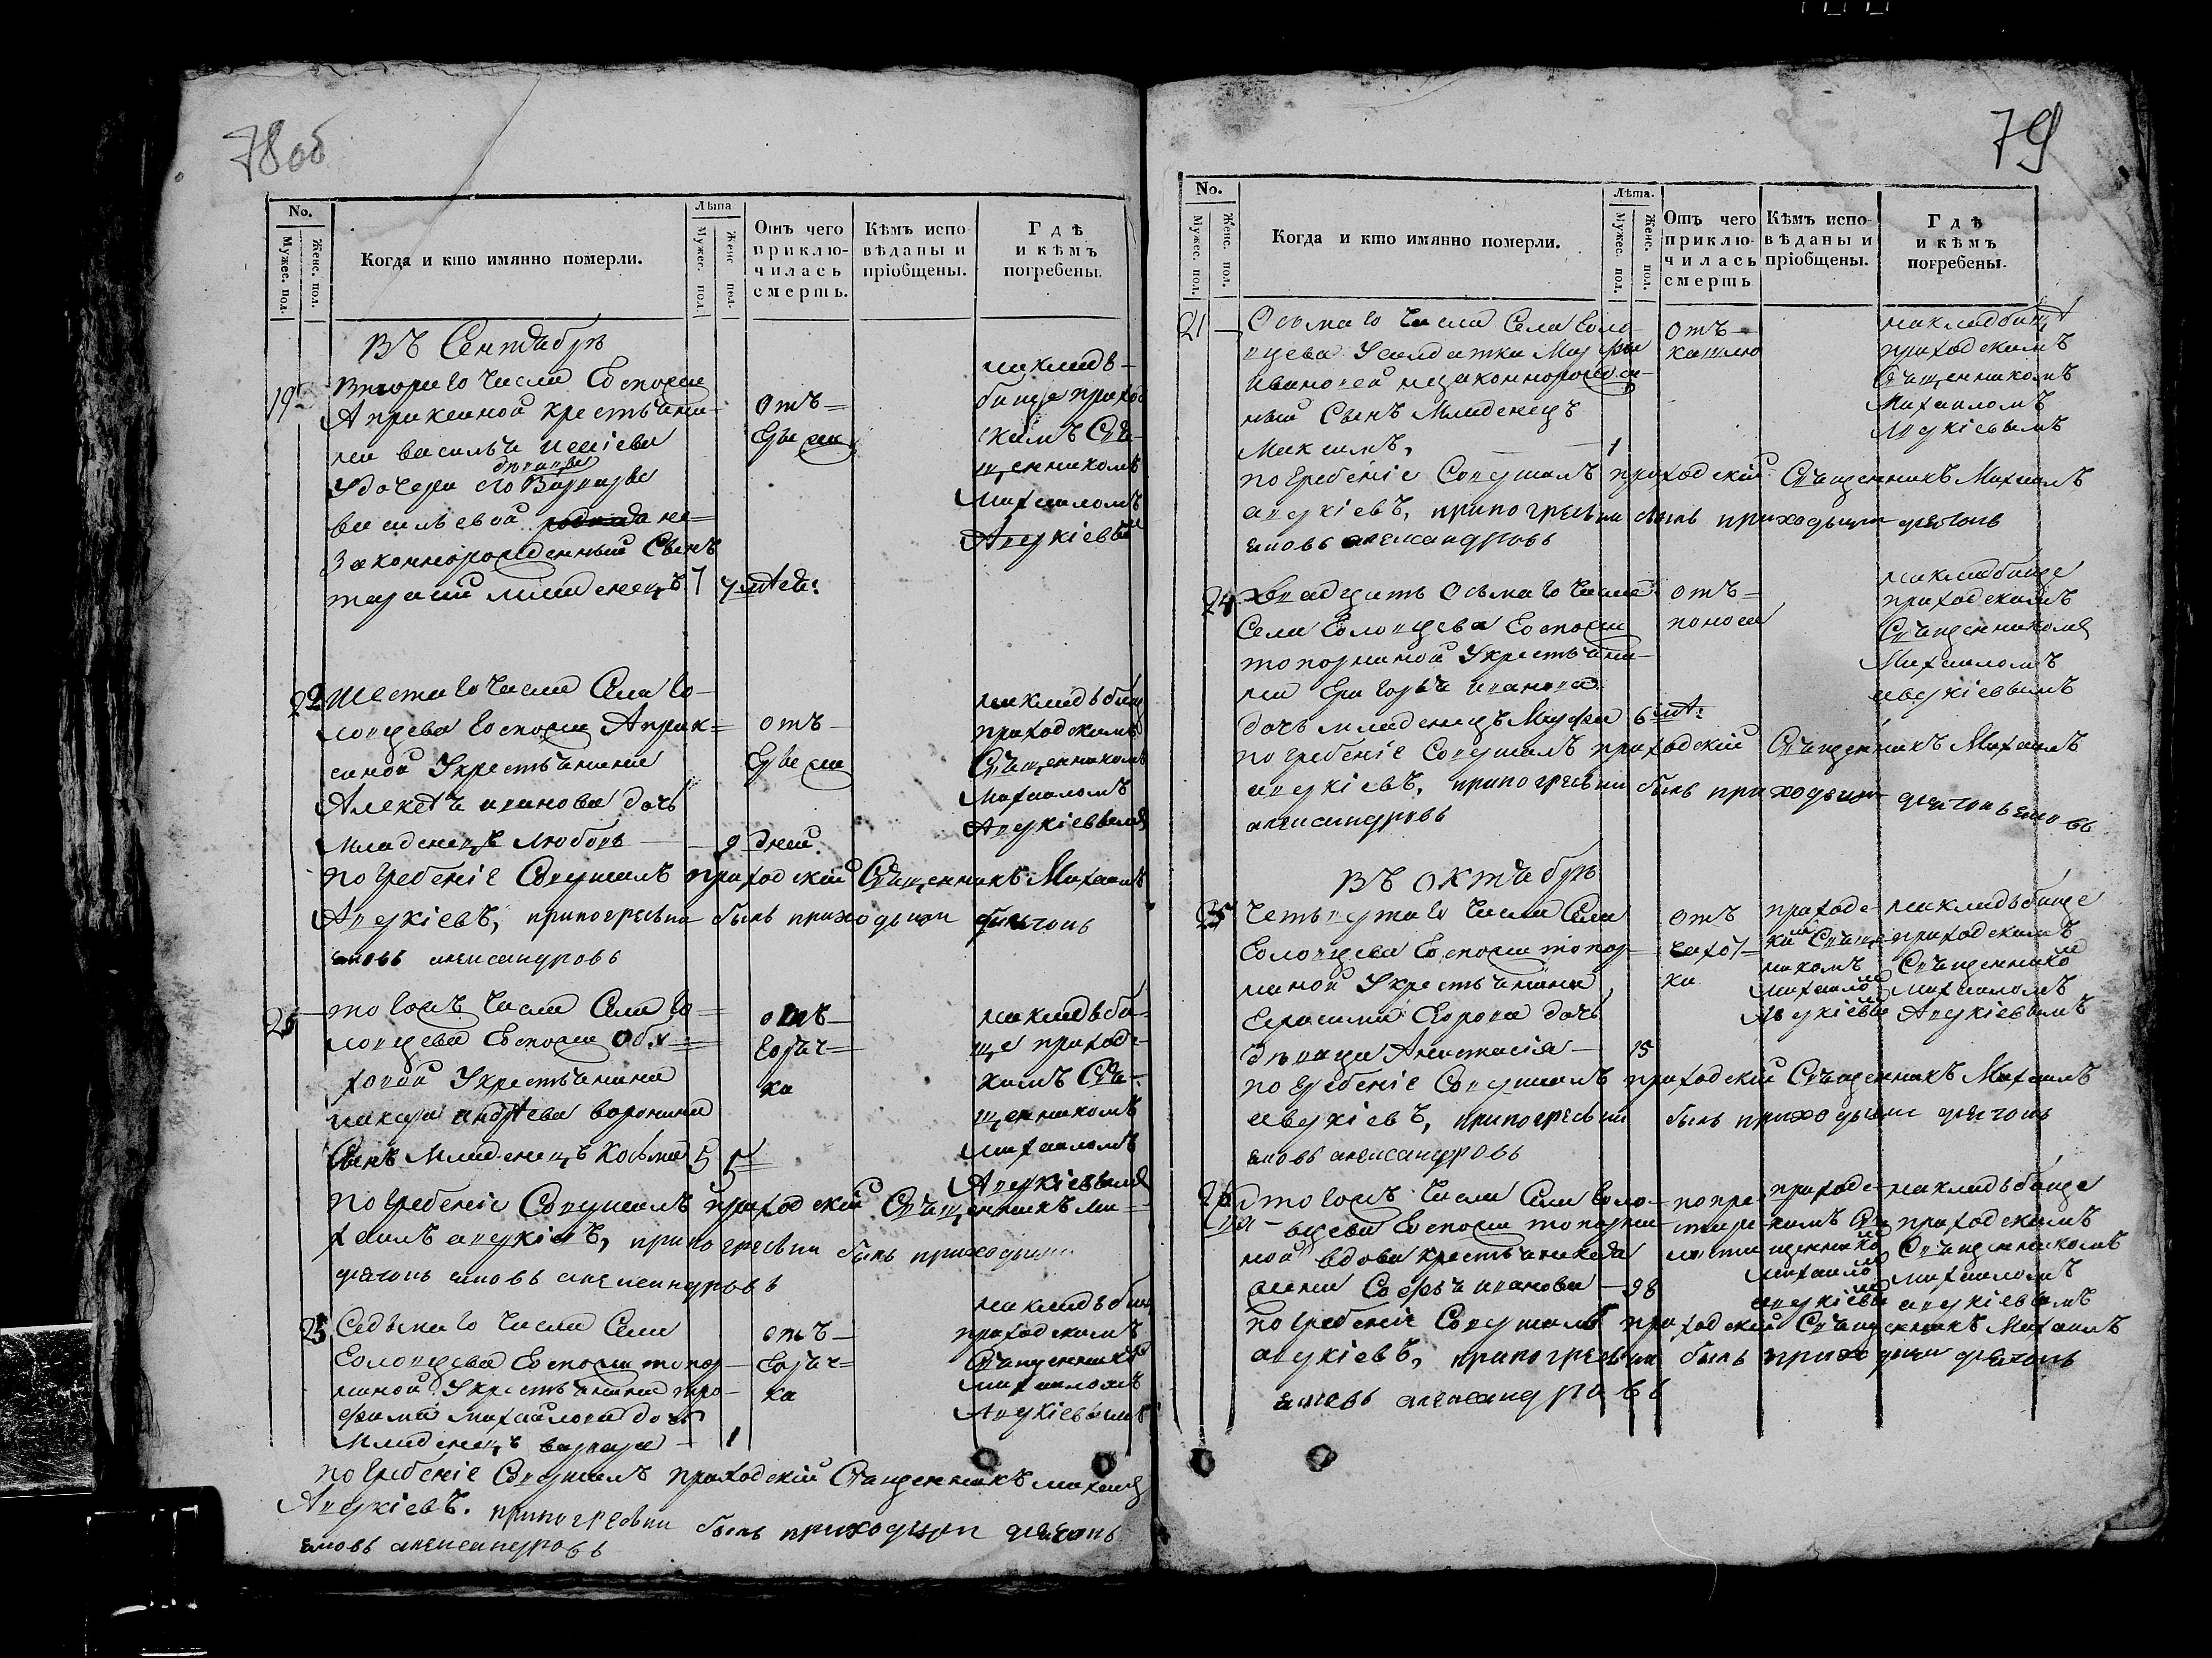 78 об
No.
Мужес. пол.
Женс. пол.
Когда и кто имянно померли.
Лѣта
Мужес. пол.
Женс пол.
Отъ чего приклю-
чилась
смерть.
Кѣмъ испо
вѣданы и
пріобщены.
Гдѣ
и кѣмъ
погребены.
Въ Сентябрѣ
19
Втораго числа Госпожи
Апраксиной крестьяни-
на василья
девицы
У дочери его Варвары
васильевой не=
законнорожденный Сынъ
младенецъ 7 7 лѣтъ:
отъ=
на кладъ-
бище приход
скимъ Свя-
щенникомъ
Михаиломъ
Авукіевым
22 Шестаго числа Села Го-
ловцева Госпожи Апрак=
синой Укрестьянина
Алексѣя иванова дочь
младенецъ Любовь 9 дней.
отъ-
на кладъбищ
приходскимъ
Священникомъ
Михаиломъ
Авукіевымъ
погребеніе Совершалъ приходскій Священникъ Михаилъ
Авукіевъ, припогребении былъ приходъскии дьячокъ
иковъ александровъ
20 тогожъ числа Села Го=
ловцева Госпожи Обу=
ховой Укрестьянина
андрѣева воронина
Сынъ Младенецъ Косьма 5 5
отъ-
горяч=
ка
на кладъби-
ще приход-
скимъ Свя-
щенникомъ
михаиломъ
Авукіевымъ
погребеніе Совершалъ приходскій Священникъ Ми=
хаилъ авукіевъ, припогребении былъ приходъскии
дьячокъ иковъ александровъ
23 Седьмаго числа Села
Головцева Госпожи топор-
ниной Укрестьянина тро-
фима михайлова дочь
Младенецъ варвара - 1
отъ-
горяч=
ка
на кладъбищ
приходскимъ
Священнико
михаиломъ
Авукіевымъ
погребеніе Совершалъ приходскій Священникъ михаил
Авукіевъ. припогребении былъ приходъскии дьячокъ
иковъ александровъ
79
No.
Мужес. пол.
Женс. пол.
Когда и кто имянно померли.
Лѣта.
Мужес. пол.
Женс. пол.
Отъ чего
приклю-
чилась
смерть
Кѣмъ испо-
вѣданы и
пріобщены.
Гдѣ
и кѣмъ
погребены.
21 - Осьмаго числа Села Голо-
вцева Усалдатки Марфы
Ивановой незаконнорожде-
ный Сынъ Младенецъ
Максимъ, 1
отъ-
кашлю
на кладбищѣ
приходскимъ
Священникомъ
Михаиломъ
Авукіевымъ
погребеніе Совершалъ приходскій Священникъ Михаилъ
авукіевъ, припогребении былъ приходъскии дьячокъ
иковъ александровъ
24 двадцать Осьмаго числа
Села Головцева Госпожи
топорниной Укрестьяни-
на Григорья иванова
дочь младенецъ Марфа 6 лѣт:
отъ=
поноса
на кладбище
приходскимъ
Священникомъ
Михаиломъ
авукіевымъ
погребеніе Совершалъ приходскій Священникъ Михаилъ
авукіевъ, припогребении былъ приходъскии дьячокъ иковъ
александровъ
Въ октябрѣ
25 Четвертаго числа Села
Головцева Госпожи топор-
ниной Укрестьянина
Герасима Егорова дочь
дѣвица Анастасія - 15
отъ
чахот-
ки
приходс-
ким Свяще-
никомъ
михаило
Авукіевы
на кладъбище
приходскимъ
Священнико
михаиломъ
Авукіевымъ
погребеніе Совершалъ приходскій Священникъ Михаилъ
авукіевъ, припогребении былъ приходъскии дьячокъ
иковъ александровъ
26 тогожъ числа Села Голо-
вцева Госпожи топорни
ной вдова крестьянская
жена Софья иванова - 98
попре-
старе
лости
приходс-
кимъ Свя
щеннико
михаило
авукіевы
на кладъбище
приходскимъ
Священникомъ
михаиломъ
авукіевымъ
погребеніе Совершалъ приходскій Священникъ Михаилъ
авукіевъ, припогребении былъ приходъскии дьячокъ
иковъ александровъ